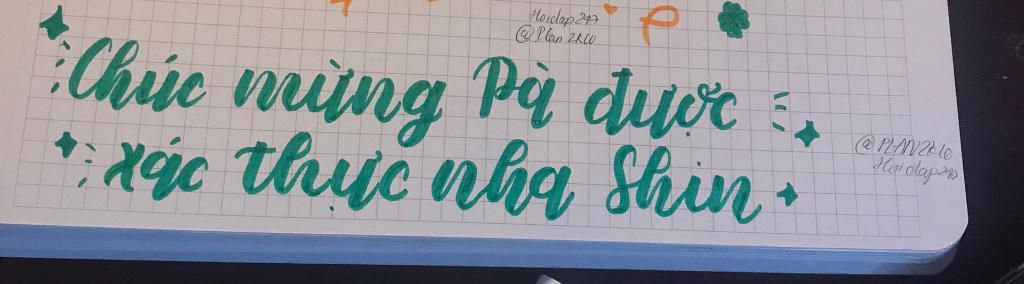 Hoidap247
@Plan2K10
Chúc mừng Pà được
xác thực nha Shin
@PLAN2K10
Hoidap247